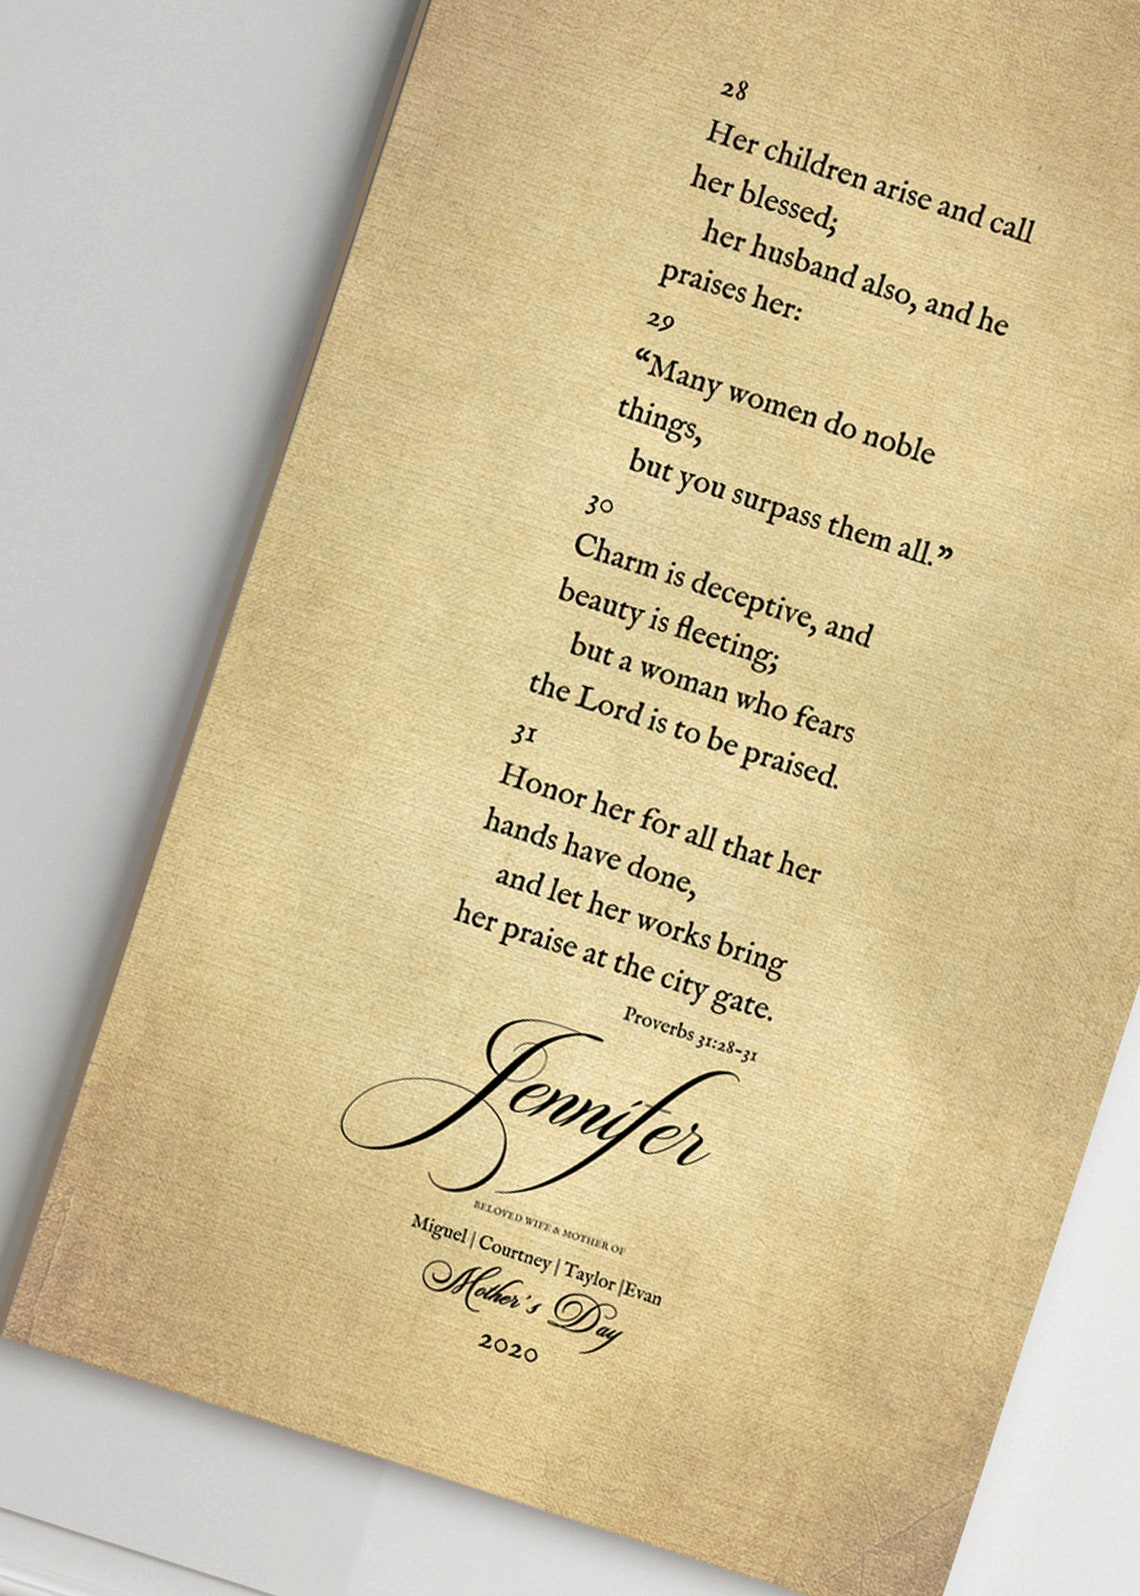 28
Her children arise and call
her blessed;
her husband also, and he
praises her:
29
“Many women do noble
things,
but you surpass them all.”
30
Charm is deceptive, and
beauty is fleeting;
but a woman who fears
the Lord is to be praised.
31
Honor her for all that her
hands have done,
and let her works bring
her praise at the city gate.
Proverbs 31:28-31
Jennifer
BELOVED WIFE & MOTHER OF
Miguel | Courtney | Taylor |Evan
Mother's Day
2020